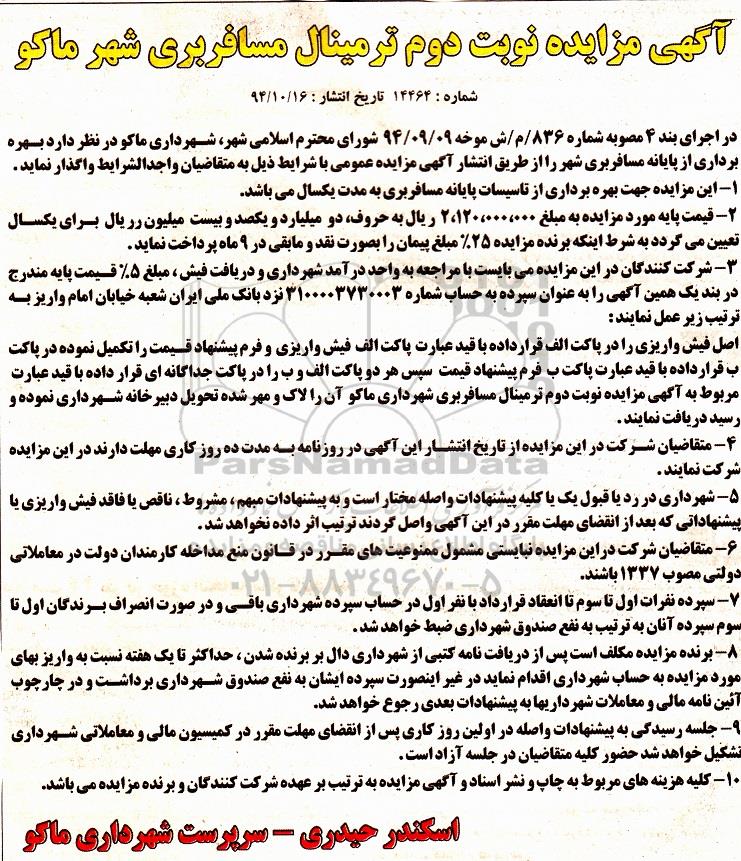 آگهی مزایده نوبت دوم ترمینال مسافربری شهر ماکو
شماره : ۱۴۴۶۴ تاریخ انتشار : ۹۴/۱۰/۱۶
در اجرای بند ۴ مصوبه شماره ۸۳۶/م/ش موخه ۹۴/۰۹/۰۹ شورای محترم اسلامی شهر، شهرداری ماکو در نظر دارد بهره
برداری از پایانه مسافربری شهر را از طریق انتشار آگهی مزایده عمومی با شرایط ذیل به متقاضیان واجدالشرایط واگذار نماید .
۱- این مزایده جهت بهره برداری از تاسیسات پایانه مسافربری به مدت یکسال می باشد.
۲- قیمت پایه مورد مزایده به مبلغ ۲،۱۲۰،۰۰۰،۰۰۰ ریال به حروف، دو میلیارد و یکصد و بیست میلیون رریال برای یکسال
تعیین می گردد به شرط اینکه برنده مزایده ۲۵٪ مبلغ پیمان را بصورت نقد و مابقی در ۹ ماه پرداخت نماید.
۳- شرکت کنندگان در این مزایده می بایست با مراجعه به واحد درآمد شهرداری و دریافت فیش ، مبلغ ۵٪ قیمت پایه مندرج
در بند یک همین آگهی را به عنوان سپرده به حساب شماره ۳۱۰۰۰۰۳۷۳۰۰۰۳ نزد بانک ملی ایران شعبه خیابان امام واریز به
ترتیب زیر عمل نمایند :
اصل فیش واریزی را در پاکت الف قرارداده با قید عبارت پاکت الف فیش واریزی و فرم پیشنهاد قیمت را تکمیل نموده در پاکت
ب قرارداده با قید عبارت پاکت ب فرم پیشنهاد قیمت سپس هر دو پاکت الف و ب را در پاکت جداگانه ای قرار داده با قید عبارت
مربوط به آگهی مزایده نوبت دوم ترمینال مسافربری شهرداری ماکو آن را لاک و مهر شده تحویل دبیرخانه شهرداری نموده و
رسید دریافت نمایند .
۴- متقاضیان شرکت در این مزایده از تاریخ انتشار این آگهی در روزنامه به مدت ده روز کاری مهلت دارند در این مزایده
شرکت نمایند .
ParsNamadData
۵- شهرداری در رد یا قبول یک یا کلیه پیشنهادات واصله مختار است و به پیشنهادات مبهم ، مشروط ، ناقص یا فاقد فیش واریزی یا
پیشنهاداتی که بعد از انقضای مهلت مقرر در این آگهی واصل گردند ترتیب اثر داده نخواهد شد .
۶- متقاضیان شرکت در این مزایده نبایستی مشمول ممنوعیت های مقرر در قانون منع مداخله کارمندان دولت در معاملاتی
دولتی مصوب ۱۳۳۷ باشند.
۰۲۱-۸۸۳۴۹۶۷۰-۵
۷- سپرده نفرات اول تا سوم تا انعقاد قرارداد با نفر اول در حساب سپرده شهرداری باقی و در صورت انصراف برندگان اول تا
سوم سپرده آنان به ترتیب به نفع صندوق شهرداری ضبط خواهد شد .
۸- برنده مزایده مکلف است پس از دریافت نامه کتبی از شهرداری دال بر برنده شدن ، حداکثر تا یک هفته نسبت به واریز بهای
مورد مزایده به حساب شهرداری اقدام نماید در غیر اینصورت سپرده ایشان به نفع صندوق شهرداری برداشت و در چارچوب
آئین نامه مالی و معاملات شهرداریها به پیشنهادات بعدی رجوع خواهد شد.
۹- جلسه رسیدگی به پیشنهادات واصله در اولین روز کاری پس از انقضای مهلت مقرر در کمیسیون مالی و معاملاتی شهرداری
تشکیل خواهد شد حضور کلیه متقاضیان در جلسه آزاد است .
۱۰- کلیه هزینه های مربوط به چاپ و نشر اسناد و آگهی مزایده به ترتیب بر عهده شرکت کنندگان و برنده مزایده می باشد.
اسکندر حیدری - سرپرست شهرداری ماکو